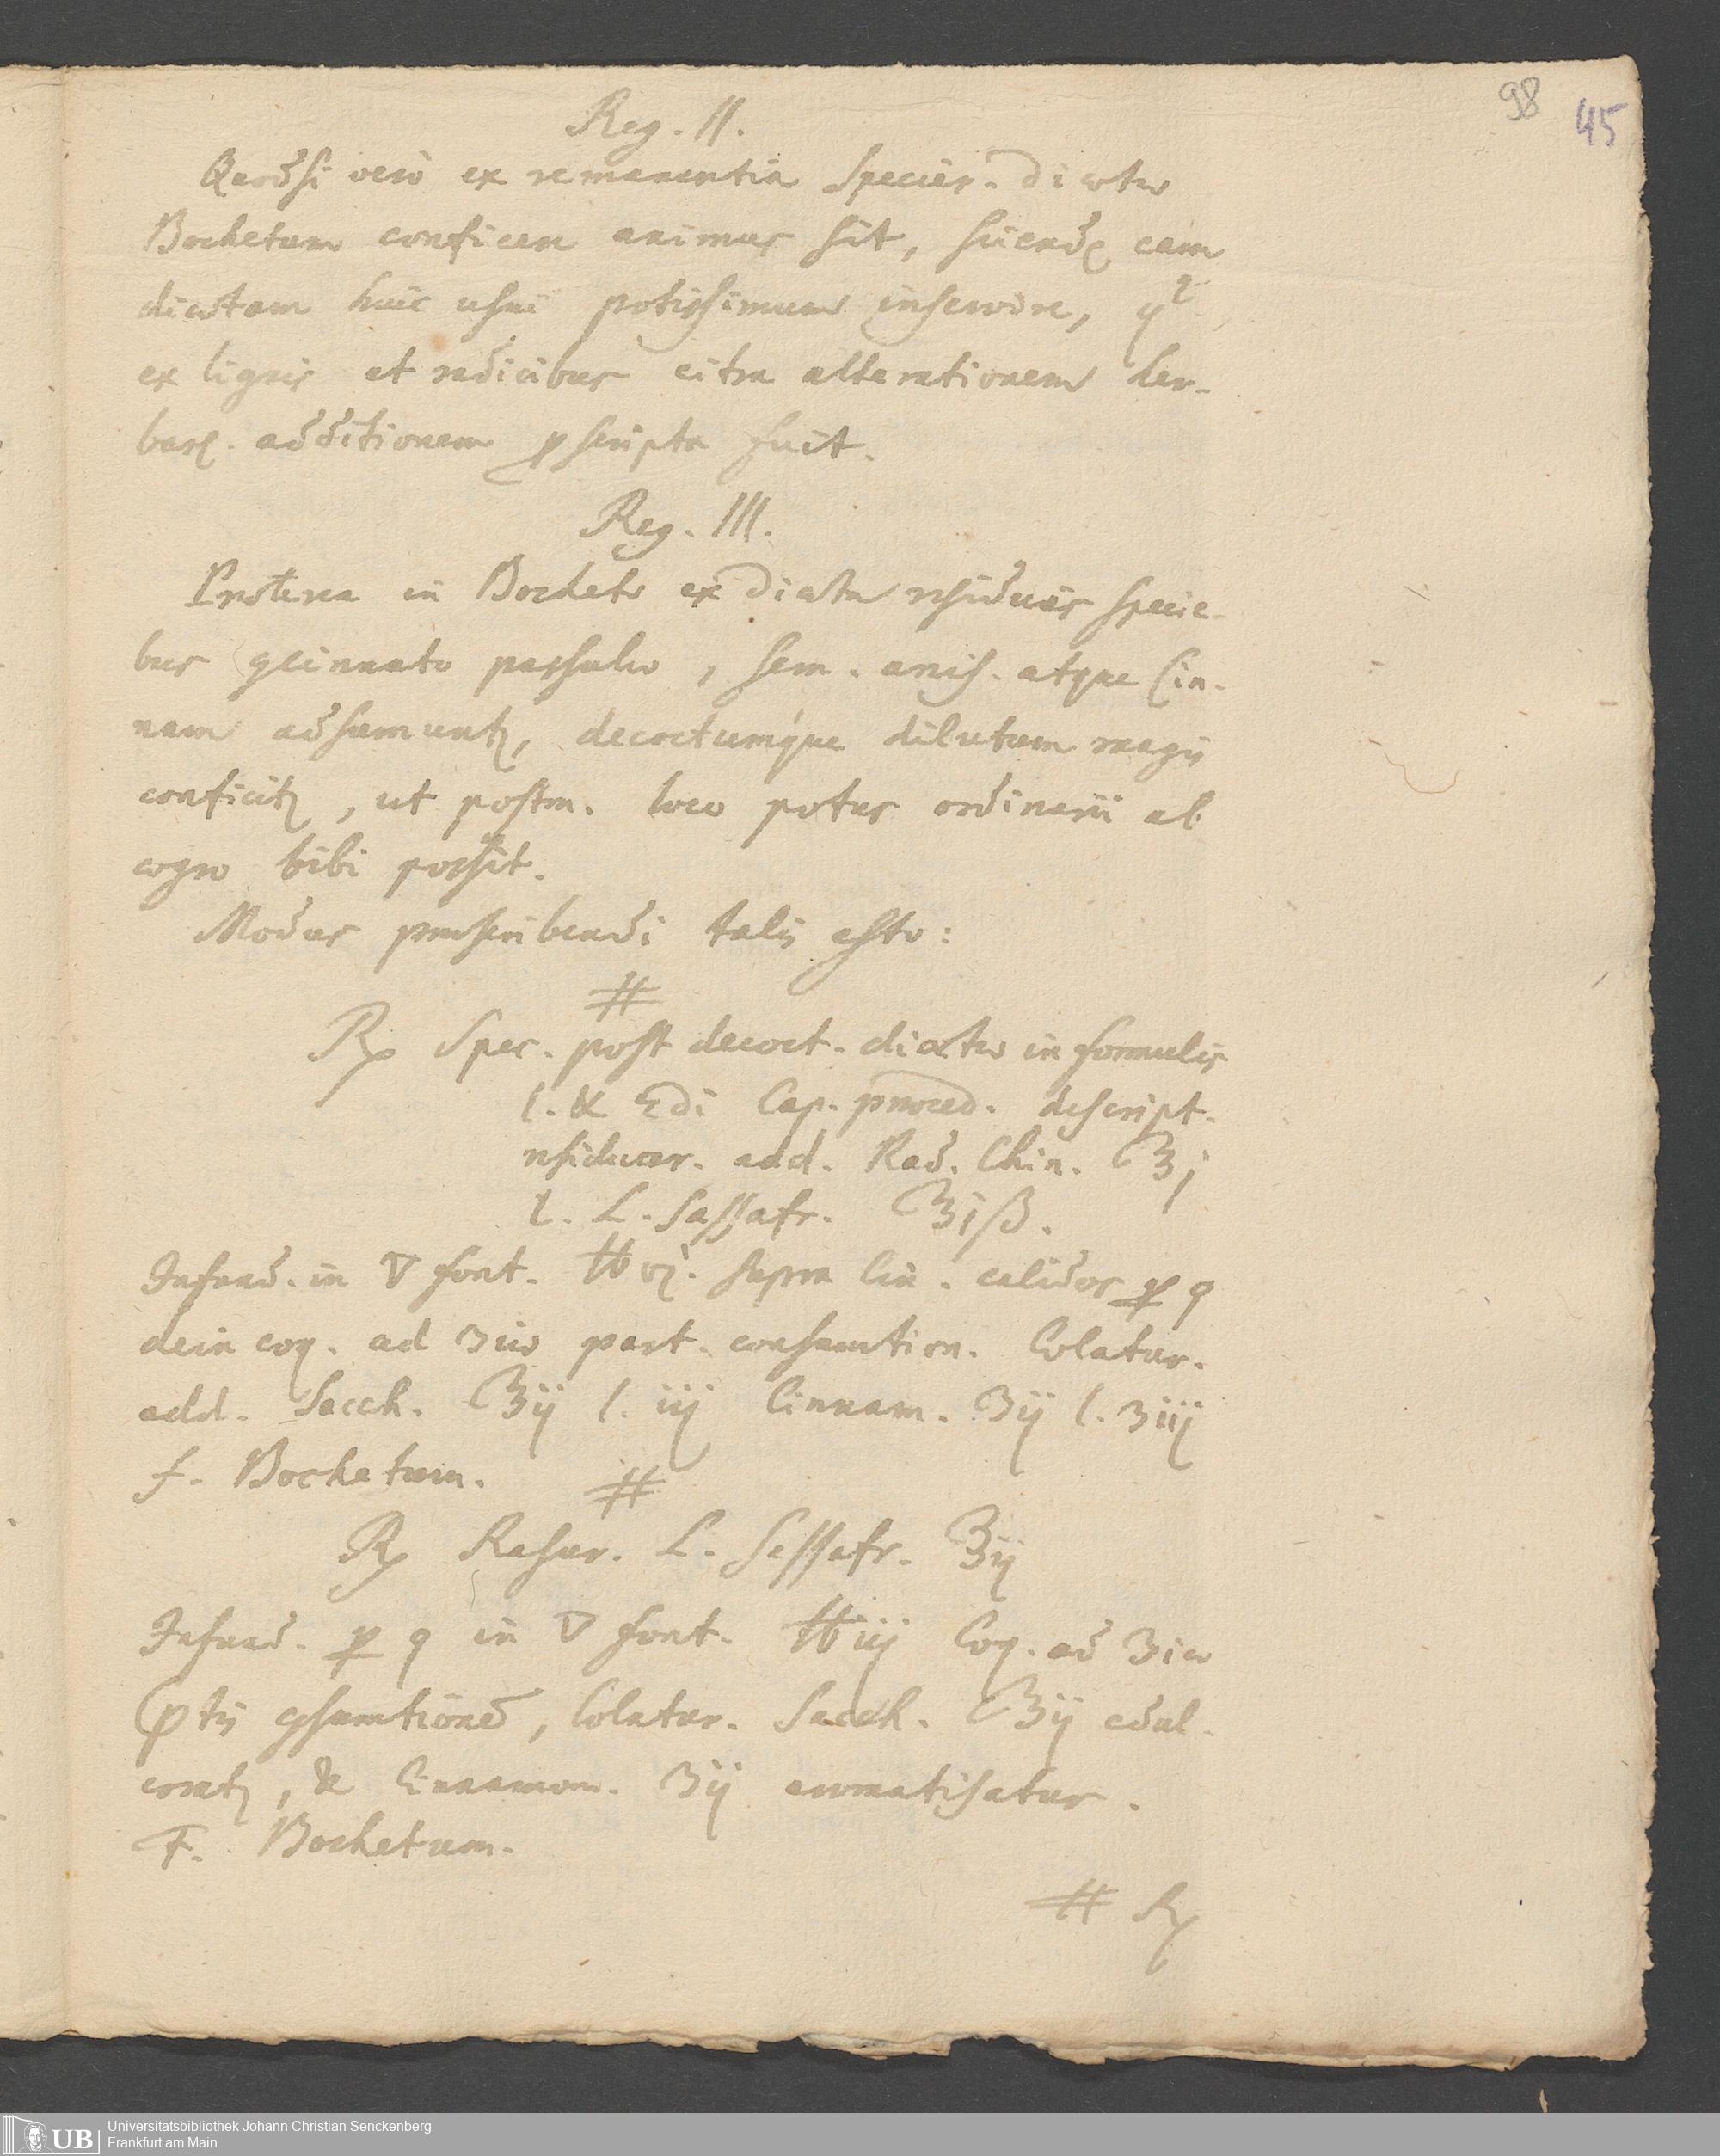 98 45
Reg. II.
Quodsi vero ex remanentia Specier. Diaetae
Bochetum conficere animus sit, sciendꝫ eam
diaetam huic usui potissimum inservire, q
ex lignis et radicibus citra alterationem her-
barꝫ. additionem pscripta fuit.
Reg. III.
Praeterea in Bocheto ex Diaeta residuis specie-
bus passulae, sem. anis. atque Cin-
nam adsumuntꝫ, decoctumque dilutum magis
conficitꝫ, ut postm. loco potus ordinarii ab
aegro bibi possit.
Modus praescribendi talis esto:
#
℞ Spec. post decoct. diaetae in formulis
1. & 2di Cap. praeced. descript.
residuar. add. Rad. Chin. ℥j
l. L. Sassafr. ℥iß.
Infund. in ▽ font. ℔vj. supra Cin. calidos p
dein coq. ad 3iae part. consumtion. Colatur.
add. Sacch. ℥ij l. iij Cinnam. ʒij l. ʒiij
f. Bochetum.
#
℞ Rasur. L. Sassafr. ℥ij
Infund. p in ▽ font. ℔iij Coq. ad 3iae
ptis gsumtione, Colatur. Sacch. ℥ij edul-
coratꝫ, & Cinnamom. ʒij aromatisatur.
F. Bochetum.
# ℞
UB Universitätsbibliothek Johann Christian Senckenberg
Frankfurt am Main